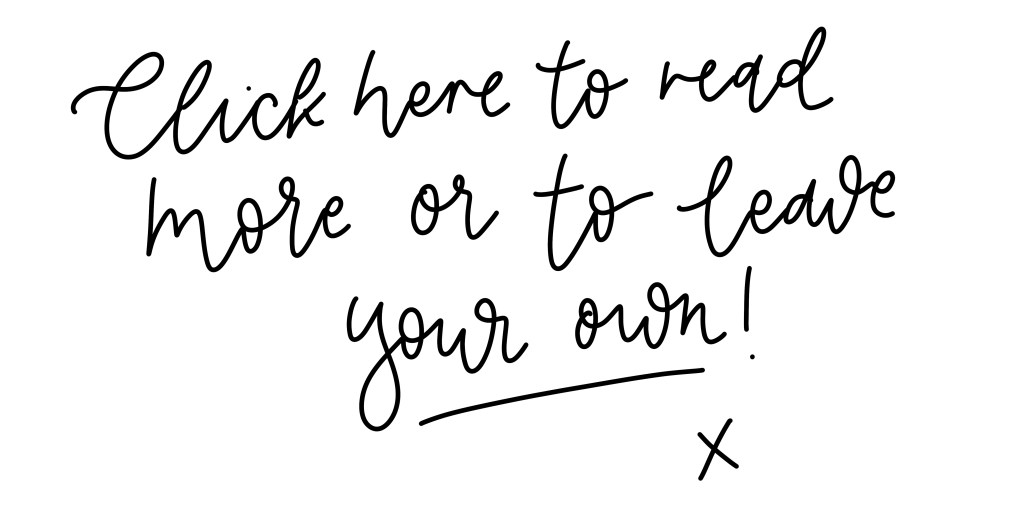 Click here to read
more or to leave
your own!
x